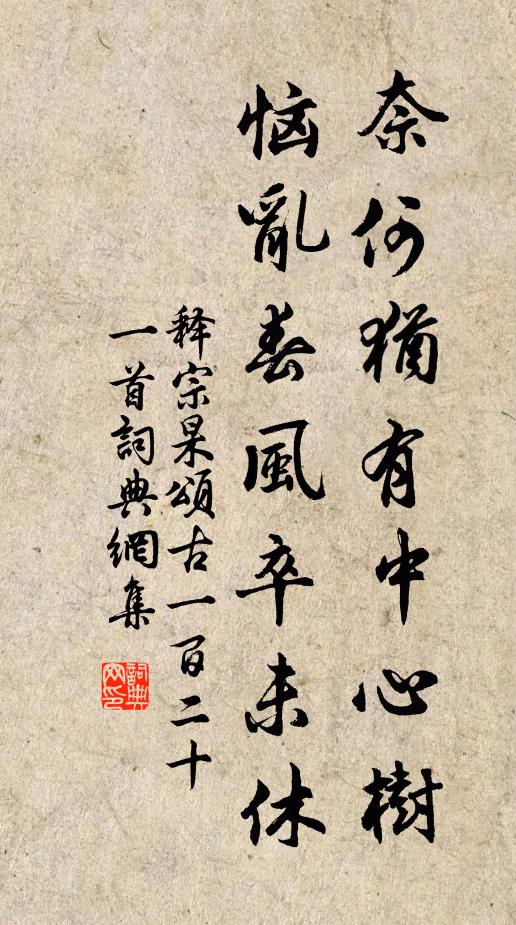 奈何猶有中心樹
恼亂春風卒未休
释宗杲頌古一百二十
一首詞典網集
詞典
网印